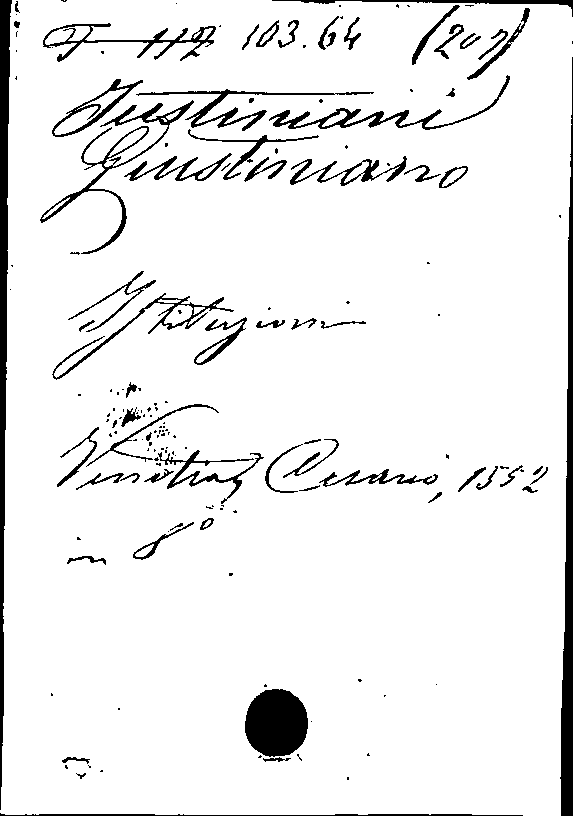 T. 112 103.64 (207)
Justiniani
Giustiniano
Istituzioni
Venetia, Cesario, 1552
in 8°